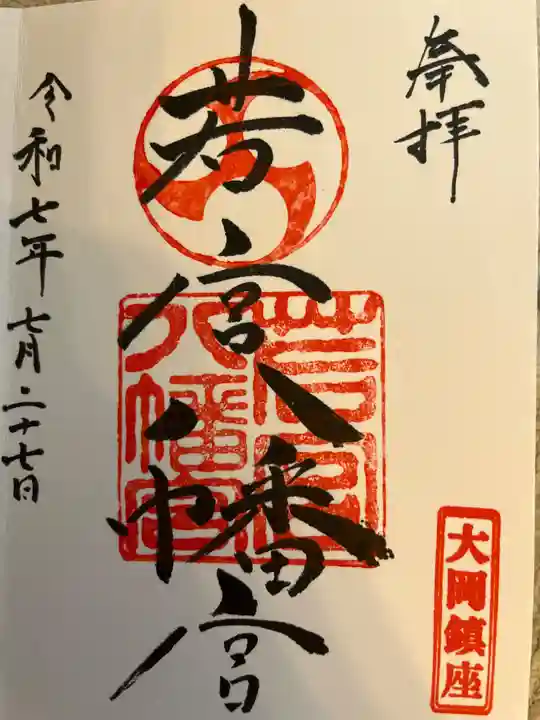 奉拝
大岡鎮座
若宮八幡宮
若宮
八幡宮
令和七年七月二十七日